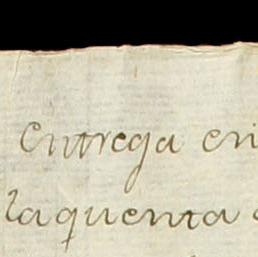 entrega en
la quenta